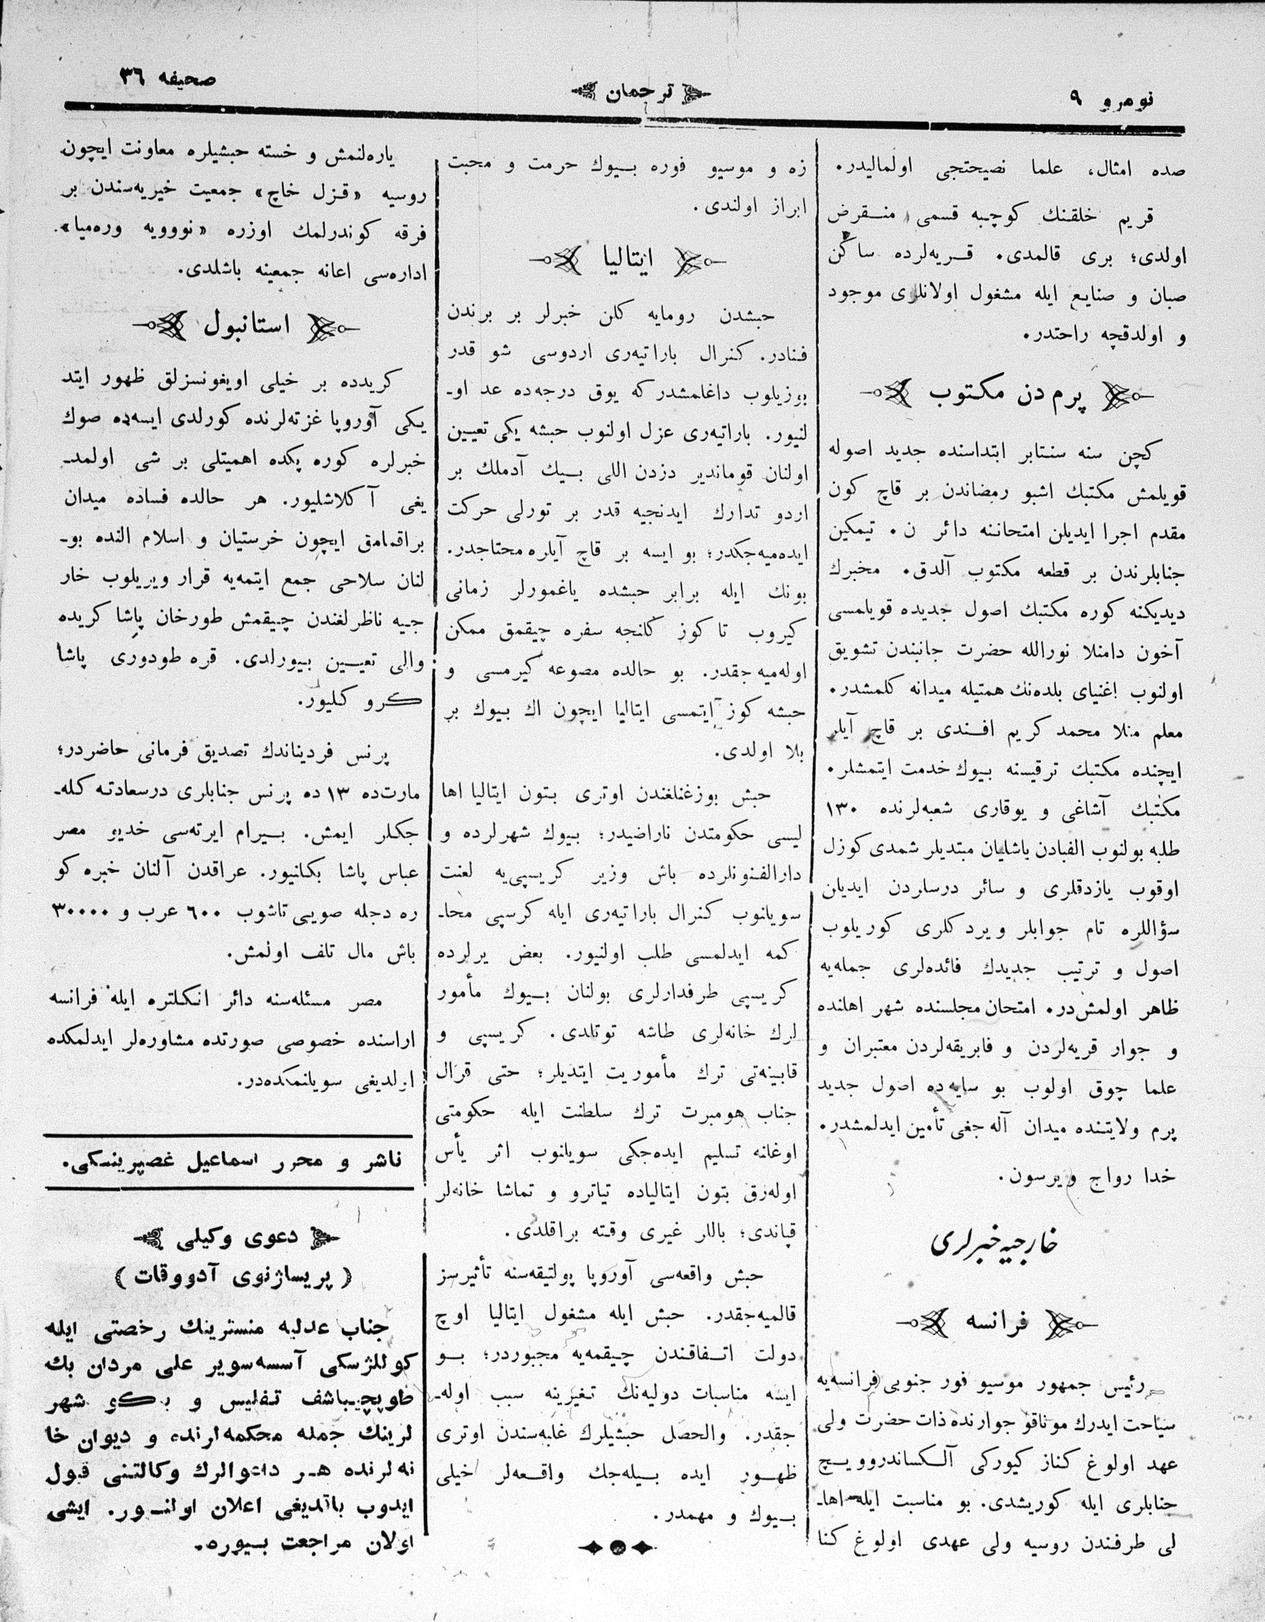 نومرو ٩
ترجمان
صحیفه ٣٦
صده امثال، علما نصیحتجی اولمالیدر.
قریم خلقنك كوچبه قسمی منقرض
اولدی؛ بری قالمدی. قریه‌لرده ساكن
صبان و صنایع ایله مشغول اولانلری موجود
و اولدقچه راحتدر.
پرم دن مكتوب
كچن سنه سنتابر ابتداسنده جدید اصوله
قویلمش مكتبك اشبو رمضاندن بر قاچ كون
مقدم اجرا ایدیلن امتحاننه دائر ن. تیمكین
جنابلرندن بر قطعه مكتوب آلدق. مخبرك
دیدیكنه كوره مكتبك اصول جدیده قویلمسی
آخون دامنلا نورالله حضرت جانبندن تشویق
اولنوب اغنیای بلده‌نك همتیله میدانه كلمشدر.
معلم منلا محمد كریم افندی بر قاچ آیلر
ایچنده مكتبك ترقیسنه بیوك خدمت ایتمشلر.
مكتبك آشاغی و یوقاری شعبه‌لرنده ١٣٠
طلبه بولنوب الفبادن باشلیان مبتدیلر شمدی كوزل
اوقوب یازدقلری و سائر درساردن ایدیان
سؤاللره تام جوابلر ویردكلری كوریلوب
اصول و ترتیب جدیدك فائده‌لری جمله‌یه
ظاهر اولمش‌در. امتحان مجلسنده شهر اهلنده
و جوار قریه‌لردن و فابریقه‌لردن معتبران و
علما چوق اولوب بو سایه‌ده اصول جدید
پرم ولایتنده میدان آله جغی تأمین ایدلمشدر.
خدا رواج ویرسون.
خارجیه خبرلری
فرانسه
رئیس جمهور موسیو فور جنوبی فرانسه‌یه
سیاحت ایدرك موناقو جوارنده ذات حضرت ولی
عهد اولوغ كناز كیوركی آلكساندروویچ
جنابلری ایله كوریشدی. بو مناسبت ایله اها-
لی طرفندن روسیه ولی عهدی اولوغ كنا
زه و موسیو فوره بیوك حرمت و محبت
ابراز اولندی.
ایتالیا
حبشدن رومایه كلن خبرلر بر برندن
فنادر. كنرال باراتیه‌ری اردوسی شو قدر
بوزیلوب داغلمشدركه یوق درجه‌ده عد او-
لنیور. باراتیه‌ری عزل اولنوب حبشه یكی تعیین
اولنان قوماندیر دزدن اللی بیك آدملك بر
اردو تدارك ایدنجیه قدر بر تورلی حركت
ایده‌میه‌جكدر؛ بو ایسه بر قاچ آیلره محتاجدر.
بونك ایله برابر حبشده یاغمورلر زمانی
كیروب تا كوز كلنجه سفره چیقمق ممكن
اوله‌میه جقدر. بو حالده مصوعه كیرمسی و
حبشه كوز ایتمسی ایتالیا ایچون اك بیوك بر
بلا اولدی.
حبش بوزغنلغندن اوتری بتون ایتالیا اها
لیسی حكومتدن ناراضیدر؛ بیوك شهرلرده و
دارالفنونلرده باش وزیر كریسپی‌یه لعنت
سویلنوب كنرال باراتیه‌ری ایله كرسپی محا-
كمه ایدلمسی طلب اولنیور. بعض یرلرده
كریسپی طرفدارلری بولنان بیوك مأمور
لرك خانه‌لری طاشه توتلدی. كریسپی و
قابینه‌تی ترك مأموریت ایتدیلر؛ حتی قرال
جناب هومبرت ترك سلطنت ایله حكومتی
اوغانه تسلیم ایده‌جكی سویلنوب اثر یأس
اوله‌رق بتون ایتالیاده تیاترو و تماشا خانه‌لر
قپاندی؛ باللر غیری وقته براقلدی.
حبش واقعه‌سی آوروپا پولتیقه‌سنه تأثیرسز
قالمیه‌جقدر. حبش ایله مشغول ایتالیا اوچ
دولت اتفاقندن چیقمه‌یه مجبوردر؛ بو
ایسه مناسبات دولیه‌نك تغیرینه سبب اوله-
جقدر. والحصل حبشیلرك غلبه‌سندن اوتری
ظهور ایده بیله‌جك واقعه‌لر خیلی
بیوك و مهمدر.
یاره‌لنمش و خسته حبشیلره معاونت ایچون
روسیه «قزل خاچ» جمعیت خیریه‌سندن بر
فرقه كوندرلمك اوزره «نوویه وره‌میا».
اداره‌سی اعانه جمعینه باشلدی.
استانبول
كریدده بر خیلی اویغونسزلق ظهور ایتد
یكی آوروپا غزته‌لرنده كورلدی ایسه‌ده صوك
خبرلره كوره پكده اهمیتلی بر شی اولمد-
یغی آكلاشلیور. هر حالده فساده میدان
براقمامق ایچون خرستیان و اسلام النده بو-
لنان سلاحی جمع ایتمه‌یه قرار ویریلوب خار
جیه ناظرلغندن چیقمش طورخان پاشا كریده
والی تعیین بیورلدی. قره طودوری پاشا
كرو كلیور.
پرنس فردیناندك تصدیق فرمانی حاضردر؛
مارت‌ده ١٣ ده پرنس جنابلری درسعادته كله-
جكلر ایمش. بیرام ایرته‌سی خدیو مصر
عباس پاشا بكلنیور. عراقدن آلنان خبره كو
ره دجله صویی تاشوب ٦٠٠ عرب و ٣٠٠٠٠
باش مال تلف اولمش.
مصر مسئله‌سنه دائر انكلتره ایله فرانسه
اراسنده خصوصی صورتده مشاوره‌لر ایدلمكده
اولدیغی سویلنمكده‌در.
ناشر و محرر اسماعیل غصپرینسكی.
دعوی وكیلی
(پریساژنوی آدووقات)
جناب عدلیه منسترینك رخصتی ایله
كوللژسكی آسسه‌سویر علی مردان بك
طوپچیباشف تفلیس و باكو شهر
لرینك جمله محكمه‌لرنده و دیوان خا
نه‌لرنده هر داعوالرك وكالتنی قبول
ایدوب باقدیغی اعلان اولنور. ایشی
اولان مراجعت بیوره.